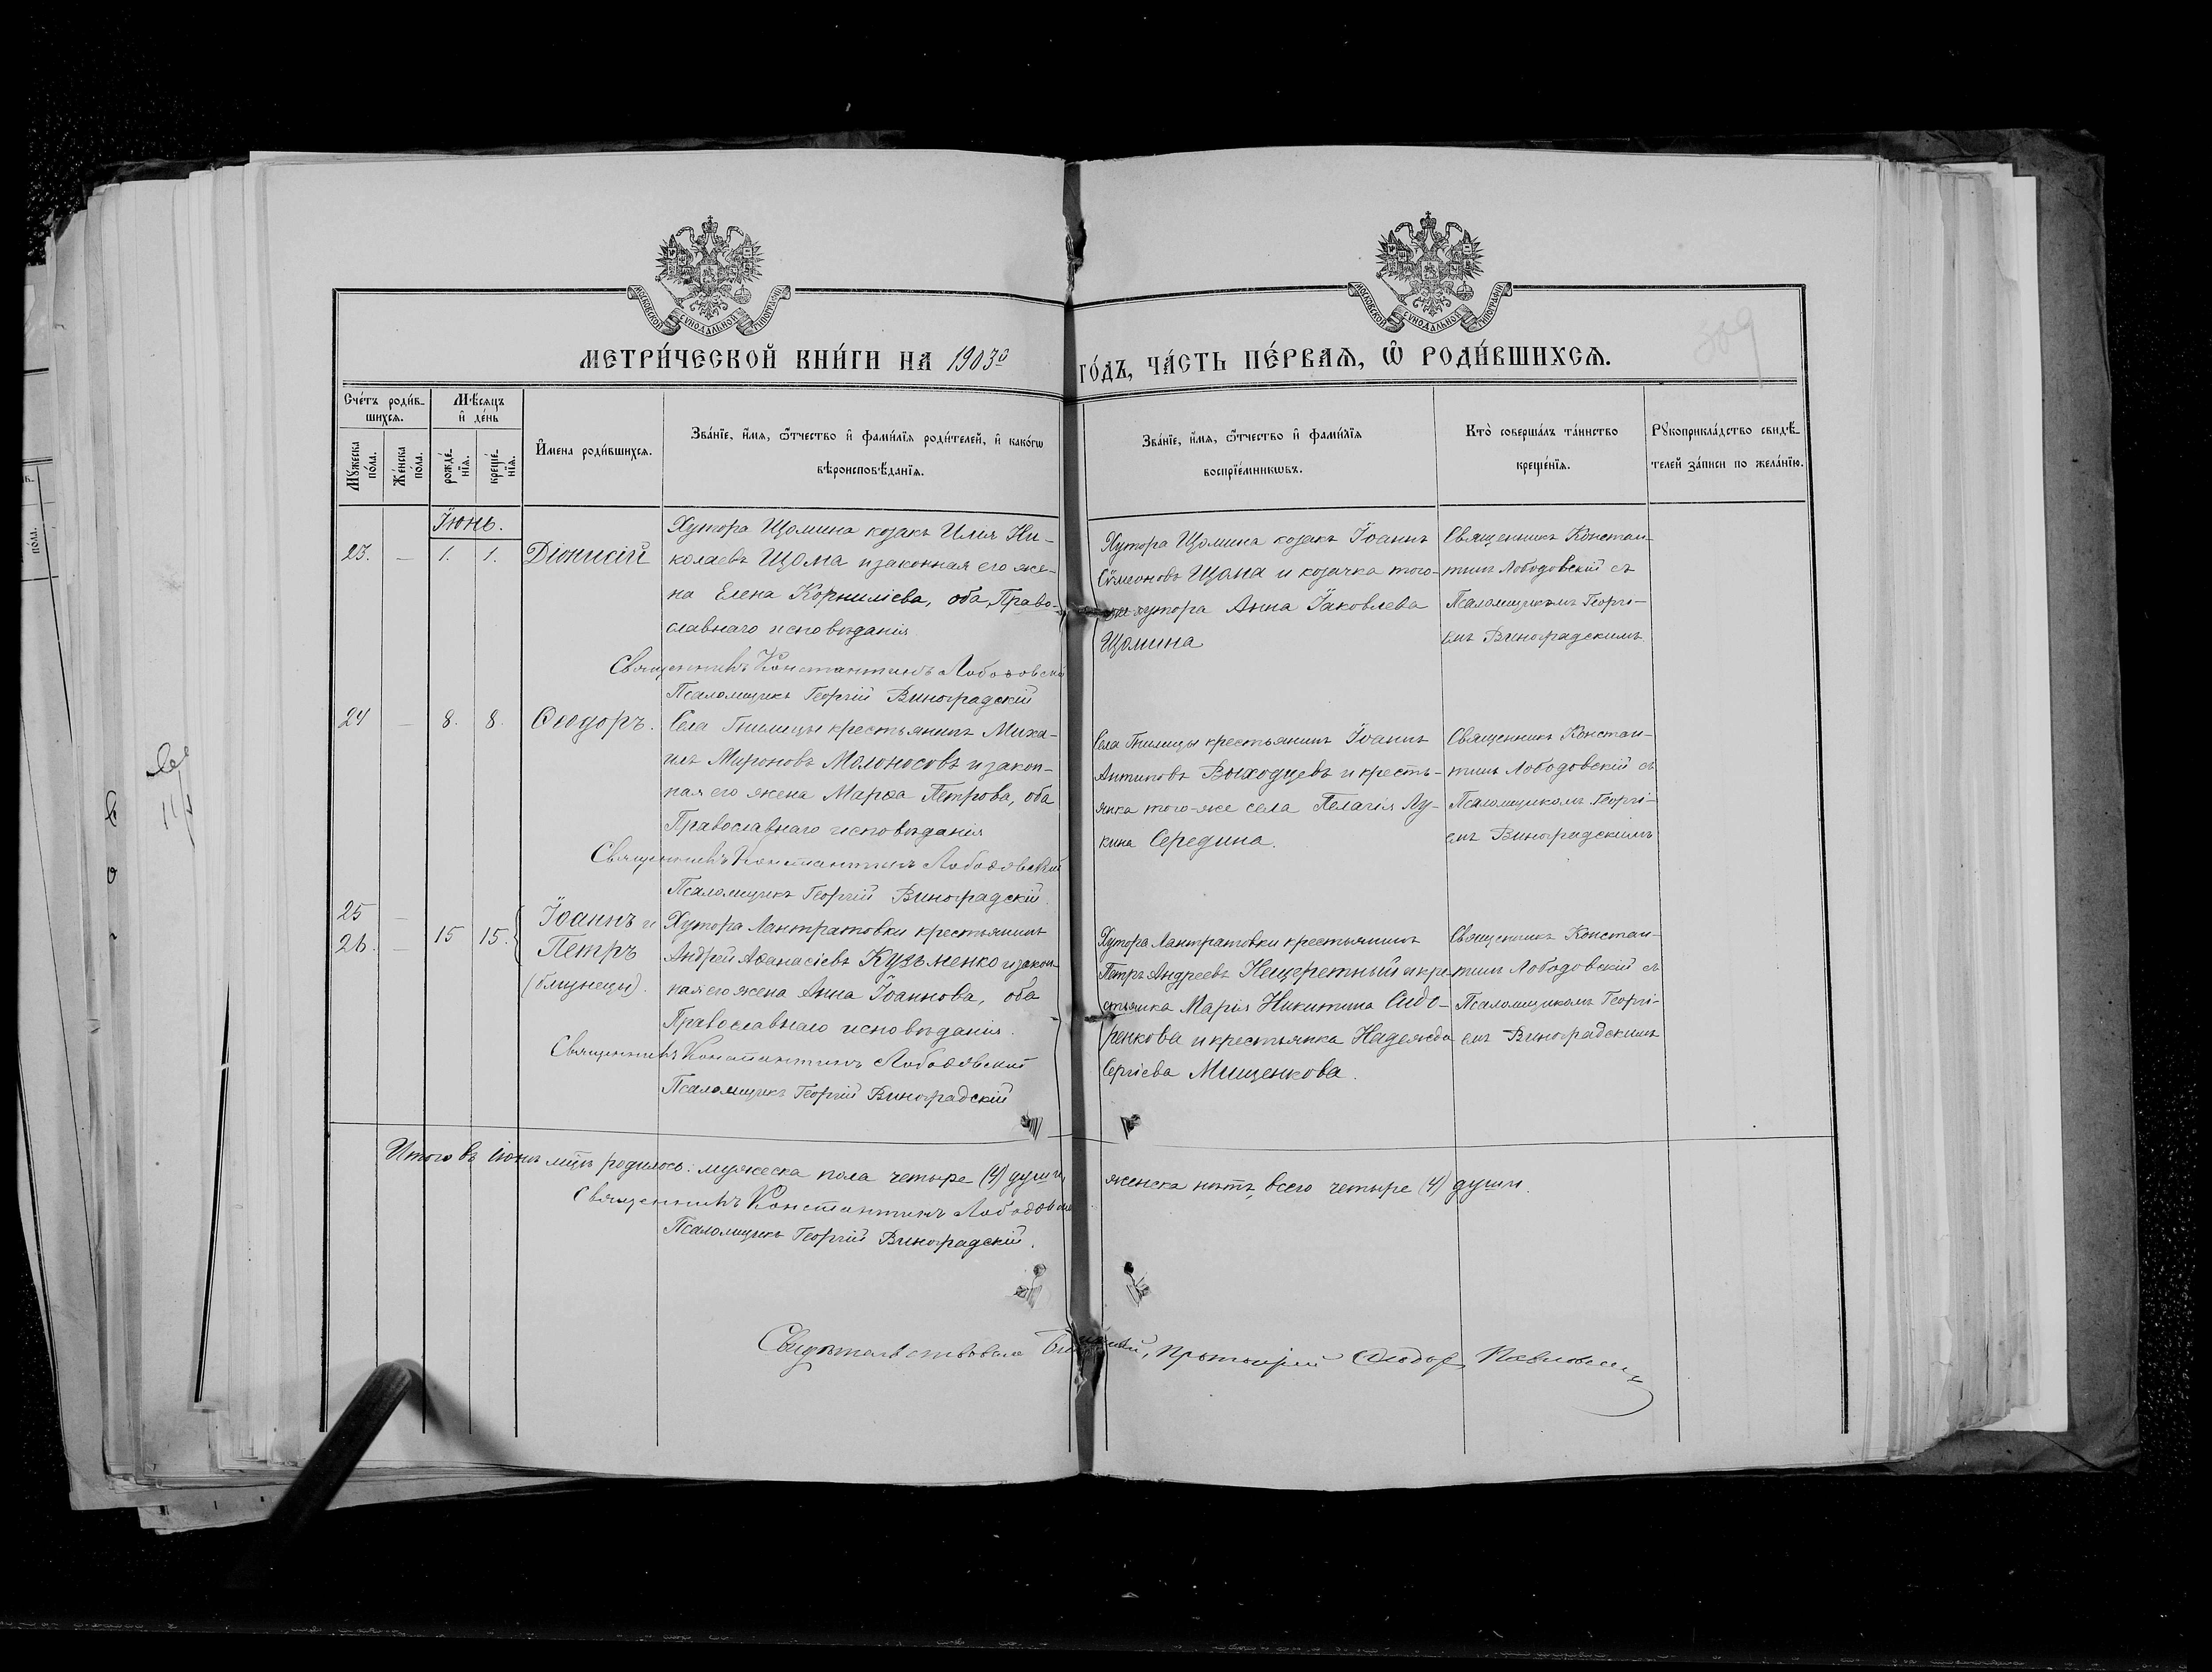 МОСКОВСКОЙ СѴНОДАЛЬНОЙ ТИПОГРАФІИ
МОСКОВСКОЙ СѴНОДАЛЬНОЙ ТИПОГРАФІИ
МЕТРИ́ЧЕСКОЙ КНИ́ГИ НА 1903й
ГО́ДЪ, ЧА́СТЬ ПЕ́РВАѦ, Ѽ РОДИ́ВШИХСѦ.
Сче́тъ роди́в-
шихсѧ.
Мꙋжеска по́ла.
Же́нска по́ла.
Мѣ́сѧцъ
и҆ де́нь
рожде́-нїѧ.
креще́-нїѧ.
И҆мена роди́вшихсѧ.
Зва́нїе, и҆́мѧ, ѻ҆́тчество и҆ фами́лїѧ роди́телей, и҆ како́гѡ
вѣроисповѣ́данїѧ.
Зва́нїе, и҆́мѧ, ѻ҆́тчество и҆ фами́лїѧ
воспрїе́мникѡвъ.
Кто̀ соверша́лъ та́инство
креще́нїѧ.
Рꙋкоприкла́дство свидѣ́-
телей за́писи по жела́нїю.
Іюнь.
23. – 1. 1. Діонисій
Хутора Щомина козакъ Илія Ни-
колаевъ Щома и законная его же-
на Елена Корниліева, оба Право-
славнаго исповѣданія
Священникъ Константинъ Лободовскій
Псаломщикъ Георгій Виноградскій
Хутора Щомина козакъ Іоаннъ
Сѵмеоновъ Щома и козачка того-
же хутора Анна Іаковлева
Щомина
Священникъ Констан-
тинъ Лободовскій съ
Псаломщикомъ Георгі-
емъ Виноградскимъ
24 – 8. 8. Ѳеодоръ.
Села Гнилицы крестьянинъ Миха-
илъ Мироновъ Молоносовъ и закон-
ная его жена Марѳа Петрова, оба
Православнаго исповѣданія
Священникъ Константинъ Лободовскій
Псаломщикъ Георгій Виноградскій.
Села Гнилицы крестьянинъ Іоаннъ
Антиповъ Выходцевъ и кресть-
янка того-же села Пелагія Лу-
кина Середина.
Священникъ Констан-
тинъ Лободовскій съ
Псаломщикомъ Георгі-
емъ Виноградскимъ
25 –
26. – 15 15. Іоаннъ и
Петръ
(близнецы).
Хутора Лантратовки крестьянинъ
Андрей Аѳанасіевъ Кузьменко и закон-
ная его жена Анна Іоаннова, оба
Православнаго исповѣданія.
Священникъ Константинъ Лободовскій
Псаломщикъ Георгій Виноградскій
Хутора Лантратовки крестьянинъ
Петръ Андреевъ Нещеретный и кре-
стьянка Марія Никитина Сидо-
ренкова и крестьянка Надежда
Сергіева Мищенкова.
Священникъ Констан-
тинъ Лободовскій съ
Псаломщикомъ Георгі-
емъ Виноградскимъ
Итого въ іюнѣ м҃цѣ родилось: мужеска пола четыре (4) души,
женска нѣтъ, всего четыре (4) души.
Священникъ Константинъ Лободовскій
Псаломщикъ Георгій Виноградскій.
Свидѣтельствовалъ Протоіерей Ѳеодоръ